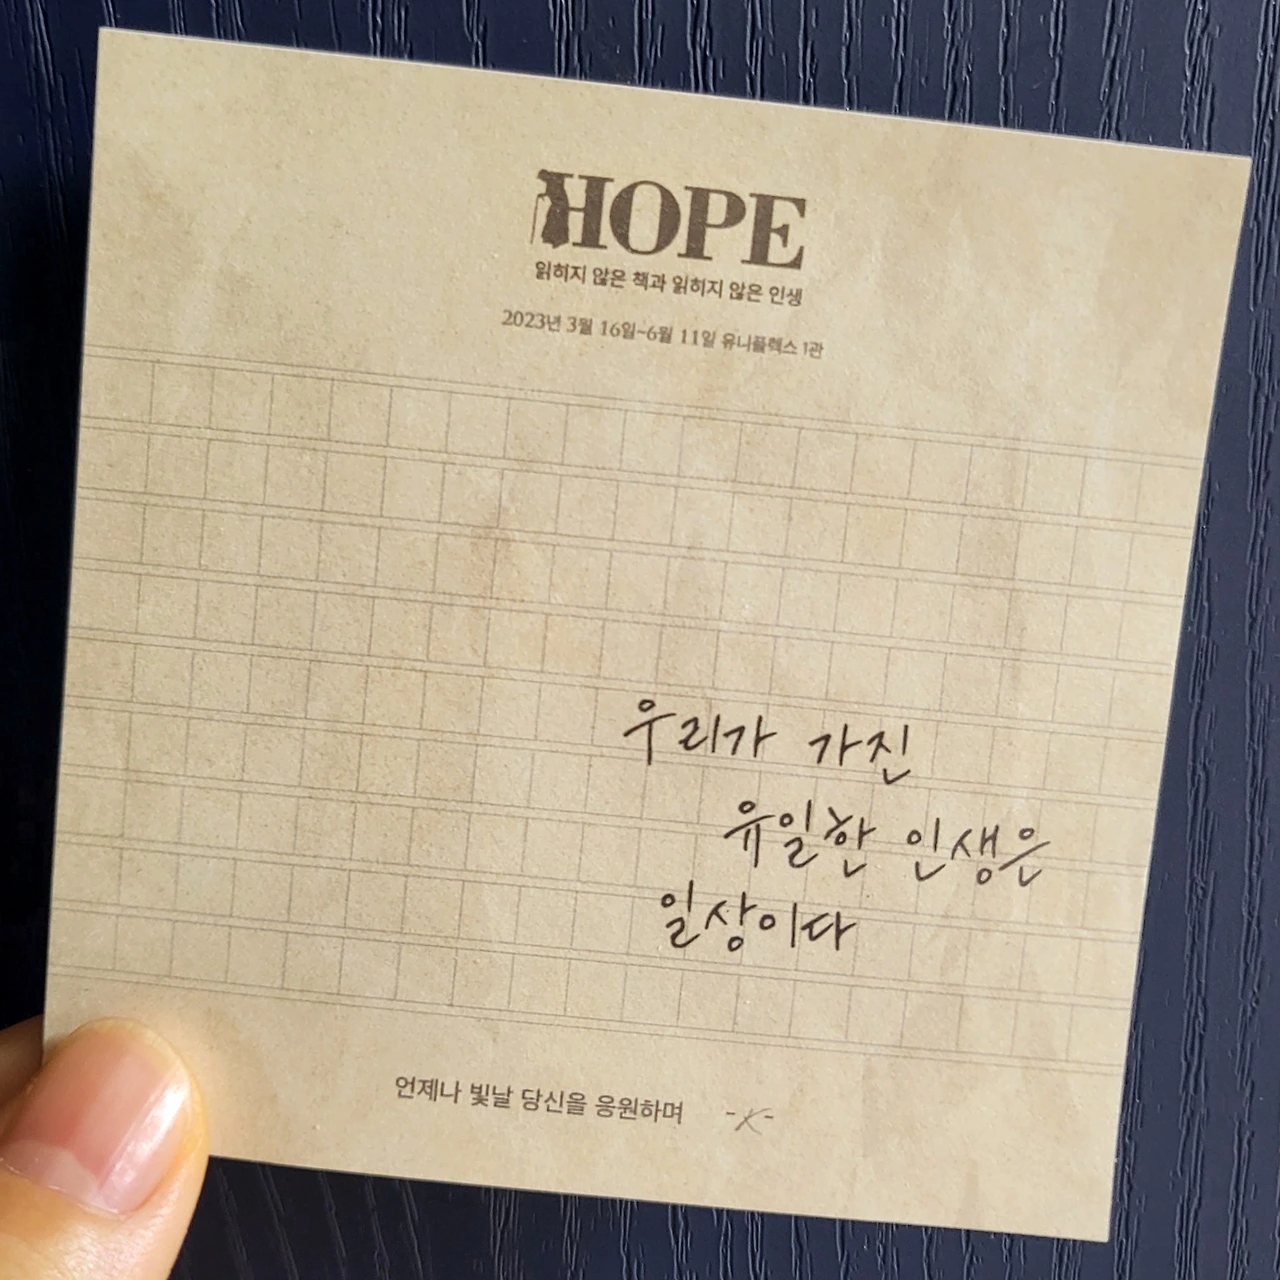 HOPE
읽히지 않은 책과 읽히지 않은 인생
2023년 3월 16일~6월 11일 유니플렉스 1관
우리가 가진
유일한 인생은
일상이다
언제나 빛날 당신을 응원하며 -x-